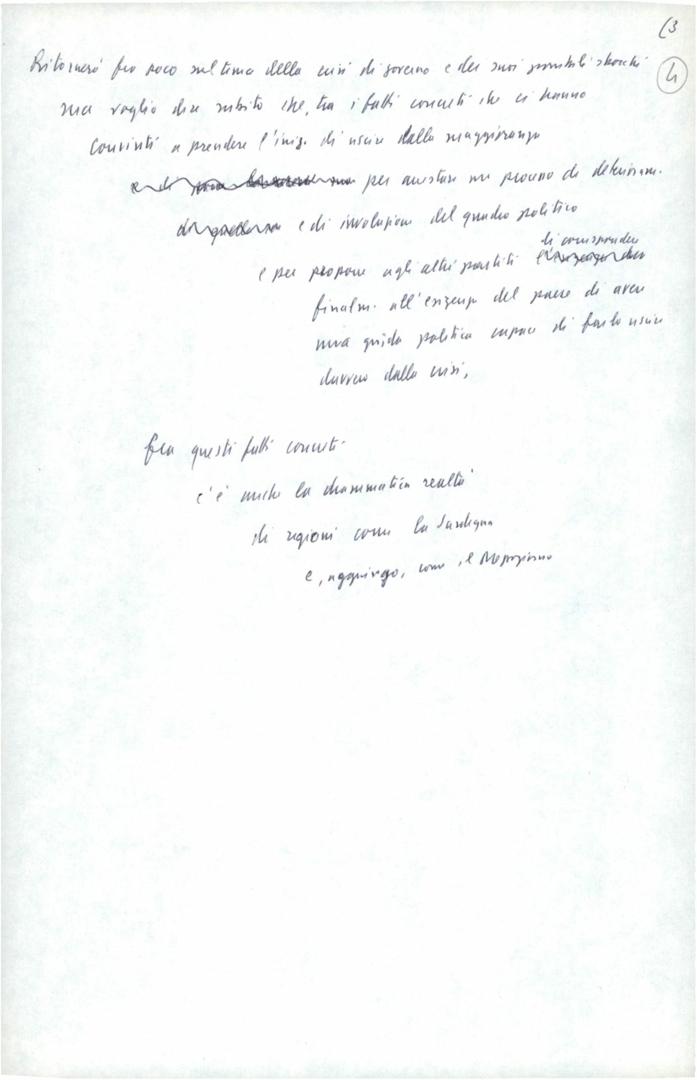 (3
4
Ritornerò fra poco sul tema della crisi di governo e dei suoi possibili sbocchi
ma voglio dire subito che, tra i fatti concreti che ci hanno
convinti a prendere l'iniz. di uscire dalla maggioranza
e di per arrestare un processo di deterioram.
e di involuzione del quadro politico
di corrispondere
e per proporre agli altri partiti
finalm. all'esigenza del paese di avere
una guida politica capace di farlo uscire
davvero dalla crisi,
fra questi fatti concreti
c'è anche la drammatica realtà
di regioni come la Sardegna
e, aggiungo, come il Mezzogiorno